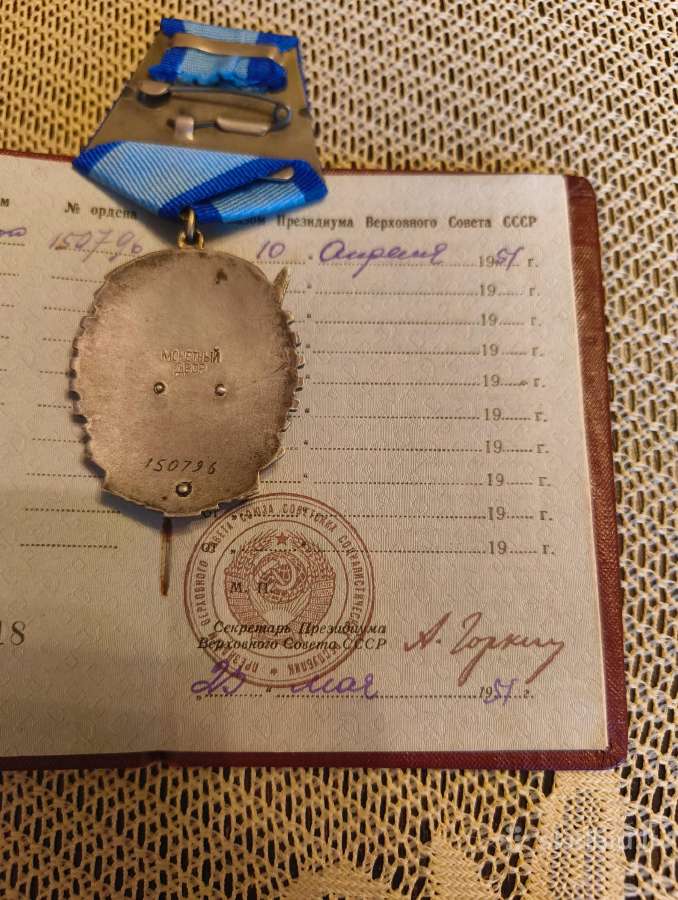 № ордена
Президиума Верховного Совета СССР
150796 10 Апреля 1951 г.
19 г.
19 г.
19 г.
19 г.
19 г.
19 г.
19 г.
19 г.
19 г.
МОНЕТНЫЙ
ДВОР
150796
М. П.
ПРЕЗИДИУМ ВЕРХОВНОГО СОВЕТА СОЮЗА СОВЕТСКИХ СОЦИАЛИСТИЧЕСКИХ РЕСПУБЛИК
Секретарь Президиума
Верховного Совета СССР
А. Горкин
25 мая 1951 г.